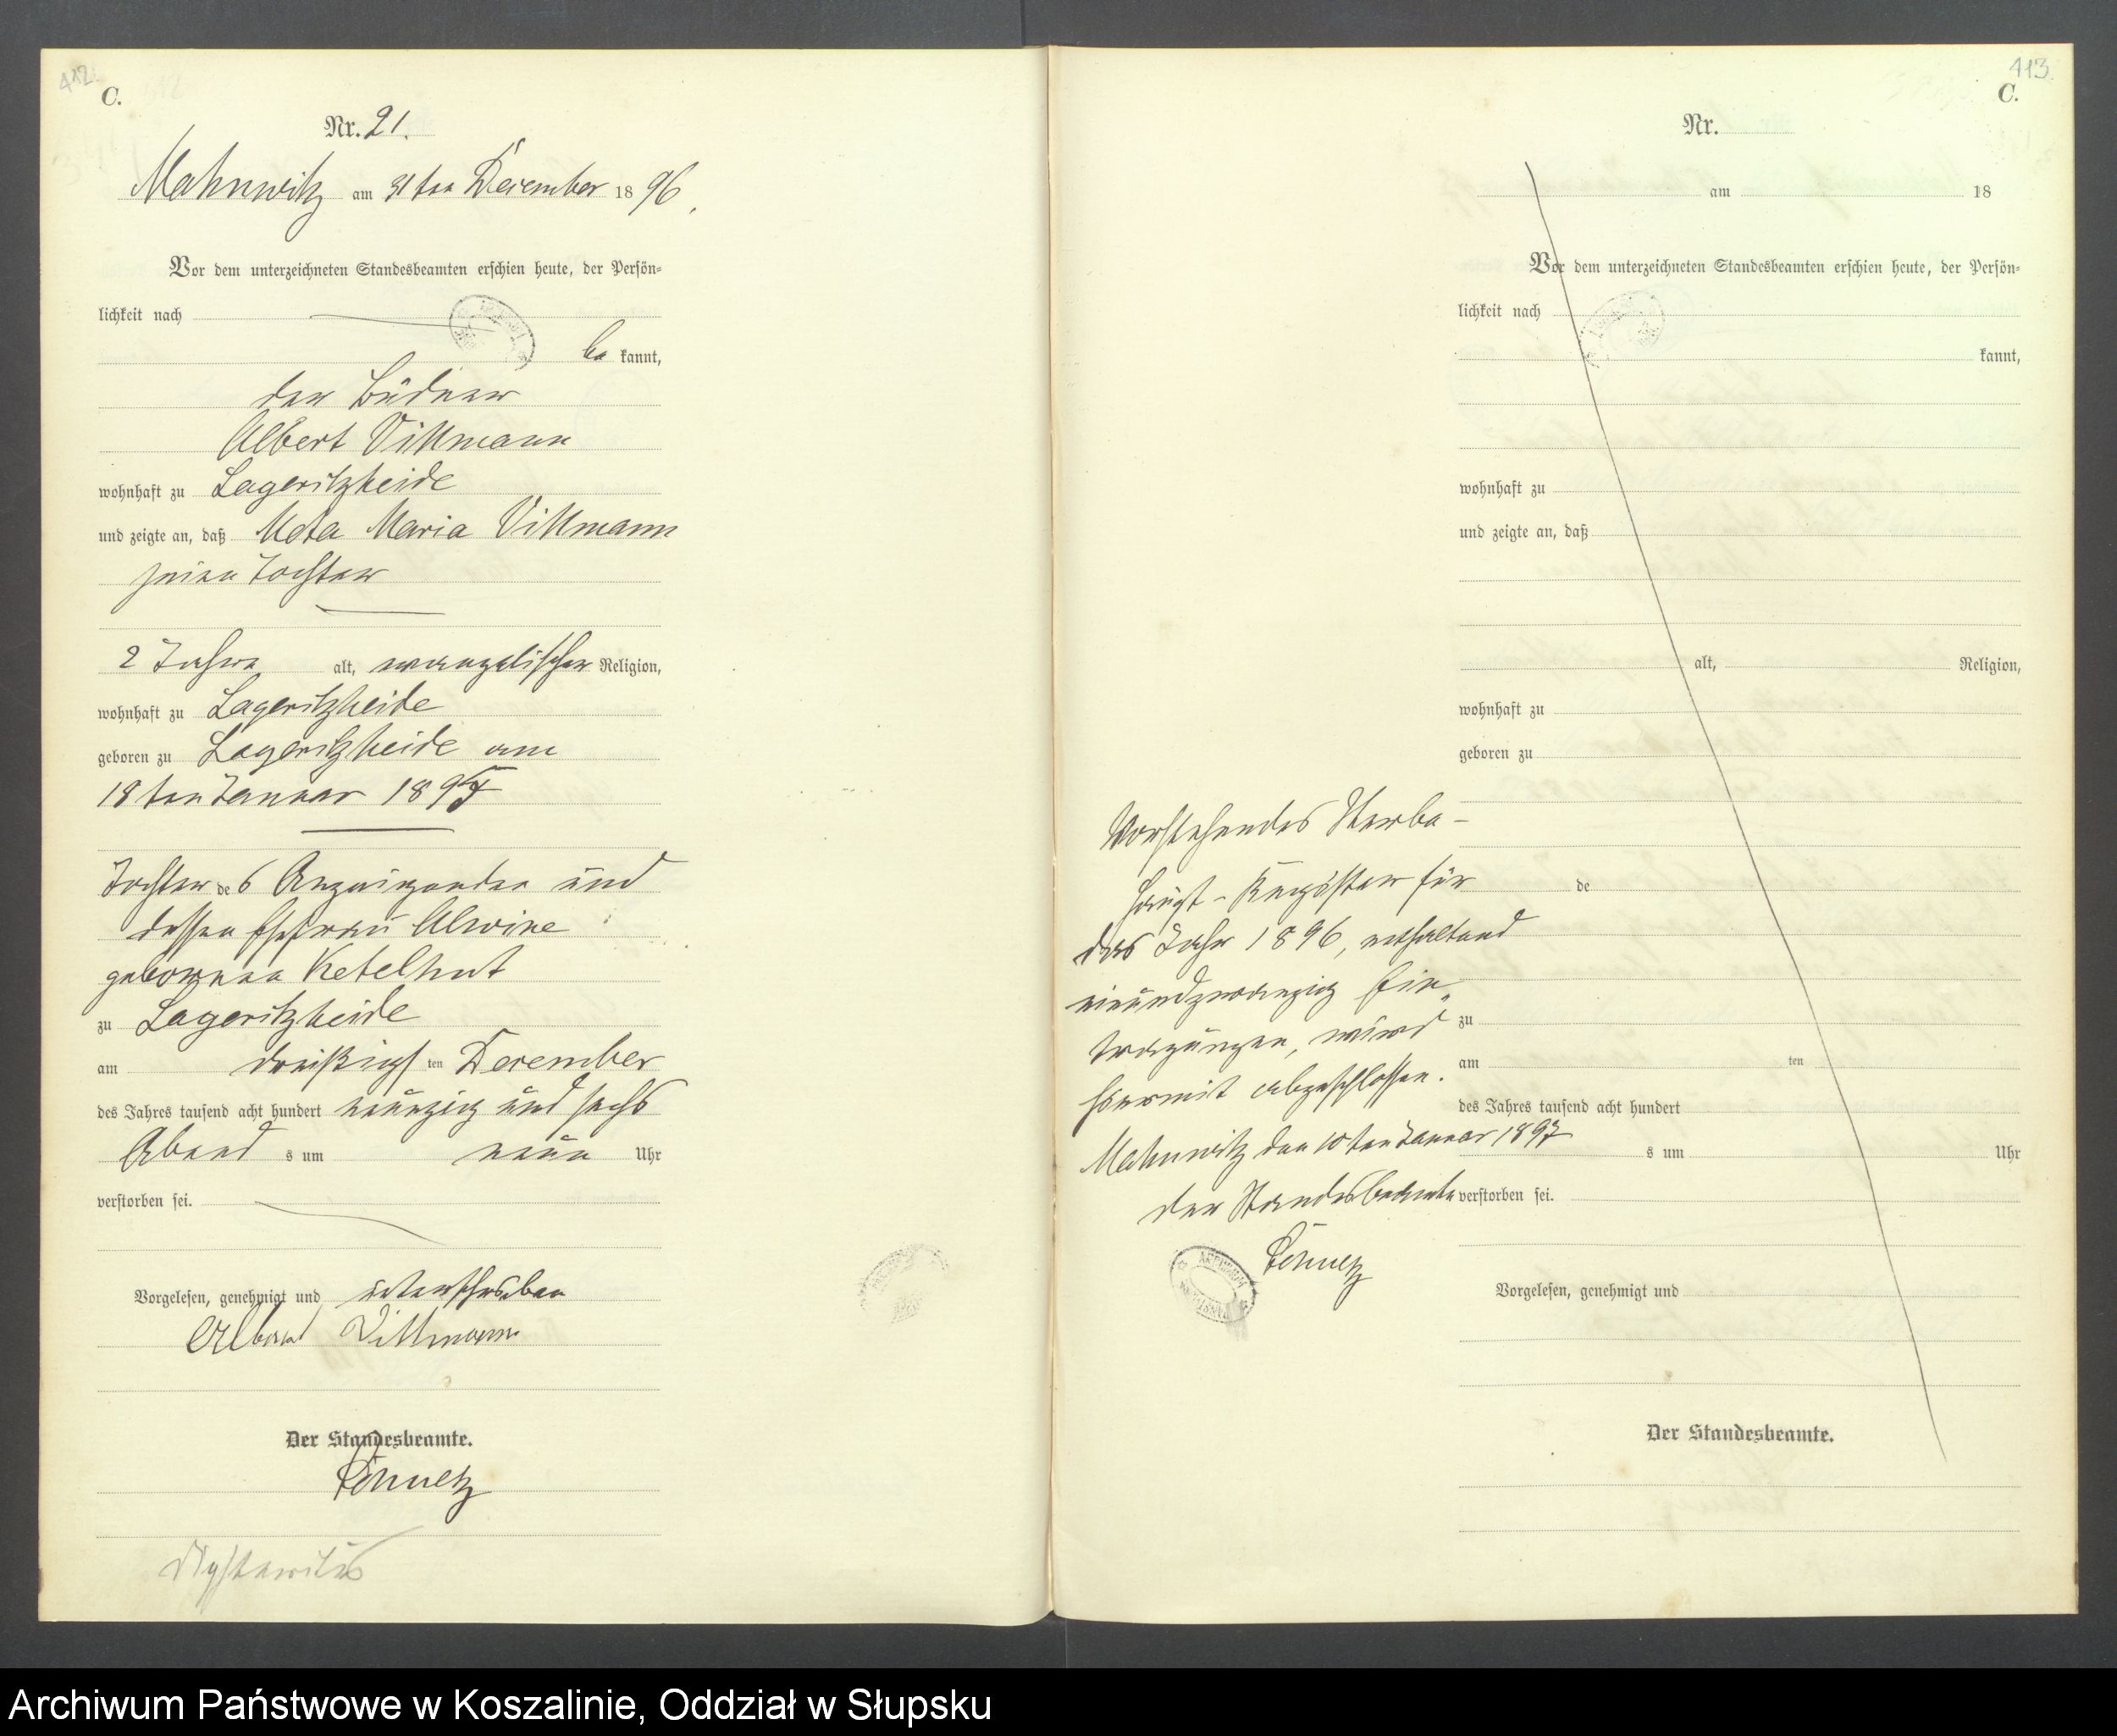 412.
C.
Nr. 21.
Mahnwitz am 31ten December 1896.
Vor dem unterzeichneten Standesbeamten erschien heute, der Persön-
lichkeit nach
bekannt,
der Büdner
Albert Villmann
wohnhaft zu Lageritzheide
und zeigte an, daß Meta Maria Villmann
seine Tochter
2 Jahre alt, evangelischer Religion,
wohnhaft zu Lageritzheide
geboren zu Lageritzheide am
18ten Januar 189
Tochter des Anzeigenden und
dessen Ehefrau Alwine
geborenen Ketelhut
zu Lageritzheide
am dreißigsten December
des Jahres tausend acht hundert neunzig und sechs
Abends um neun Uhr
verstorben sei.
Vorgelesen, genehmigt und unterschrieben
Albert Villmann
Der Standesbeamte.
413.
C.
Nr.
am 18
Vor dem unterzeichneten Standesbeamten erschien heute, der Persön-
lichkeit nach
kannt,
wohnhaft zu
und zeigte an, daß
alt, Religion,
wohnhaft zu
geboren zu
de
zu
am ten
des Jahres tausend acht hundert
s um Uhr
verstorben sei.
Vorgelesen, genehmigt und
Der Standesbeamte.
Vorstehendes Sterbe-
Haupt-Register für
das Jahr 1896, enthaltend
einundzwanzig Ein-
tragungen, wird
hiermit abgeschlossen.
Mahnwitz den 10ten Januar 1897
Der Standesbeamte
Archiwum Państwowe w Koszalinie, Oddział w Słupsku